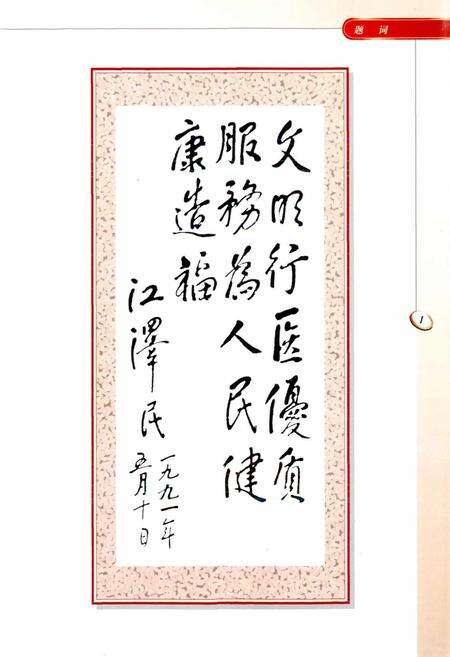 题 词
文明行医優质
服務為人民健
康造福
江澤民
一九九一年
五月十日
1